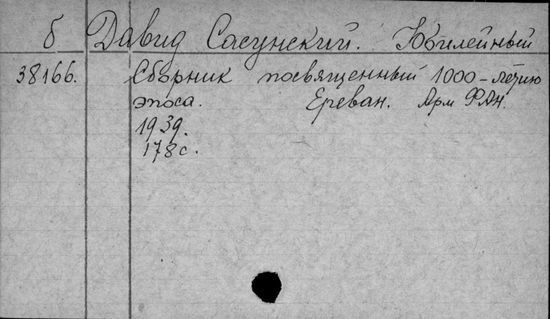 б Давид Сасунский. Юбилейный
38166. Сборник посвященный 1000-летию
эпоса. Ереван. Арм ФАН.
1939.
178с.